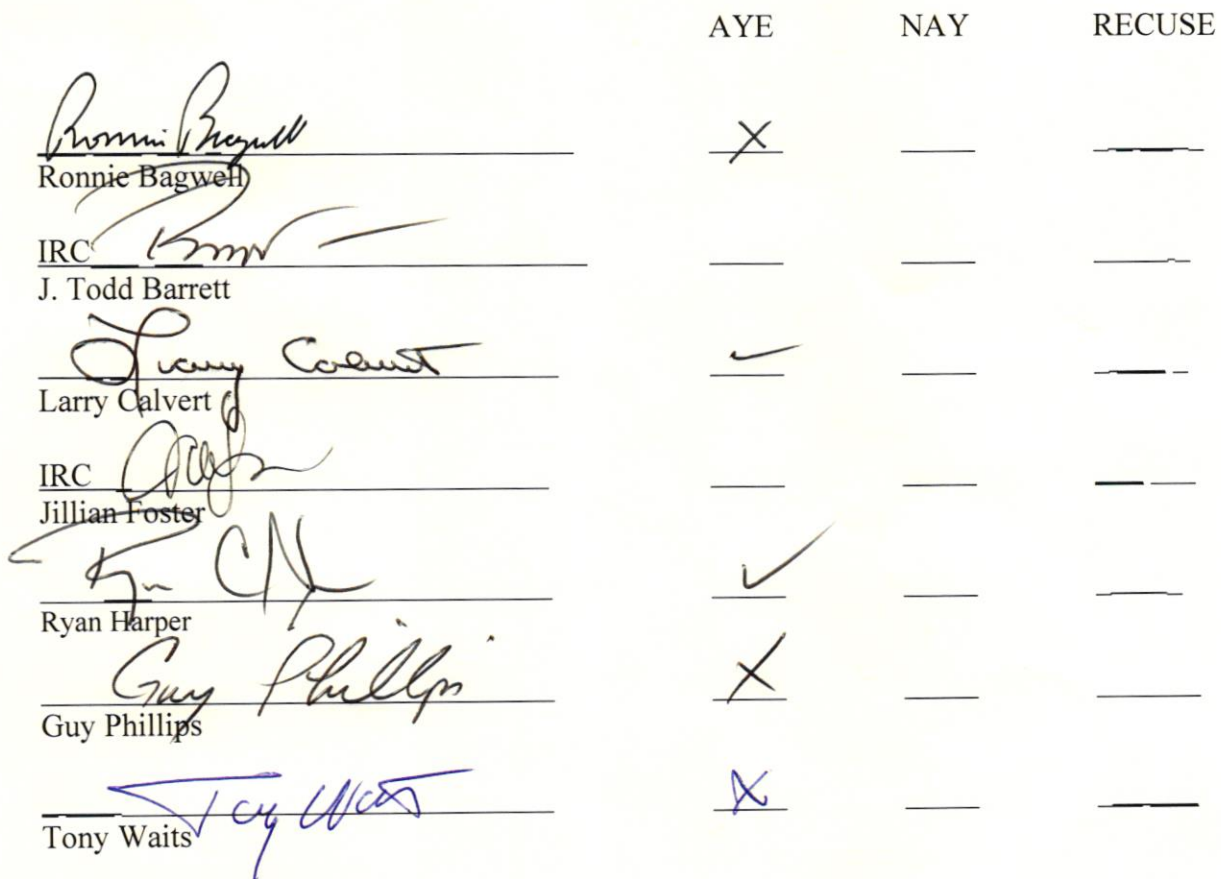 AYE NAY RECUSE
Ronnie Bagwell X
Ronnie Bagwell
IRC
J. Todd Barrett
Larry Calvert ✓
Larry Calvert
IRC
Jillian Foster
✓
Ryan Harper
Guy Phillips X
Guy Phillips
Tony Waits X
Tony Waits